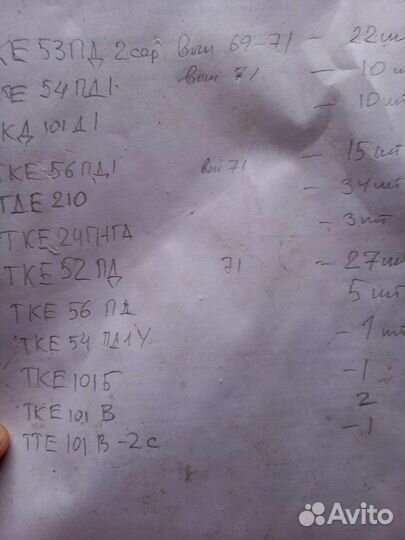 КЕ 53ПД 2сар вып 69-71 - 22шт
КЕ 54ПД1 вып 71 - 10шт
КД 101Д1 - 10шт
КЕ 56ПД1 вып 71 - 15шт
ТДЕ 210 - 34шт
ТКЕ 24ПНГА - 3шт
ТКЕ 52ПД 71 - 27шт
ТКЕ 56 ПД 5шт
ТКЕ 54 ПД1У - 1шт
ТКЕ 101Б -1
ТКЕ 101 В 2
ТПЕ 101 В -2с -1
Avito